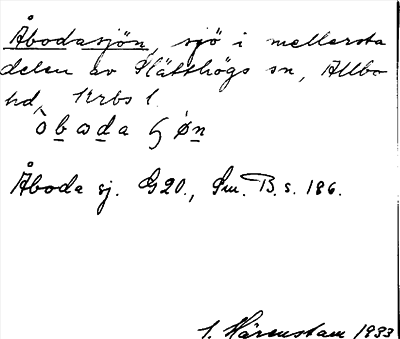 Åbodasjön, sjö i mellersta
delen av Slätthögs sn, Allbo
hd, Krbs l.
òbωda ɧøn
Åboda sj. G20., Sm. B. s. 186.
S. Härenstam 1933